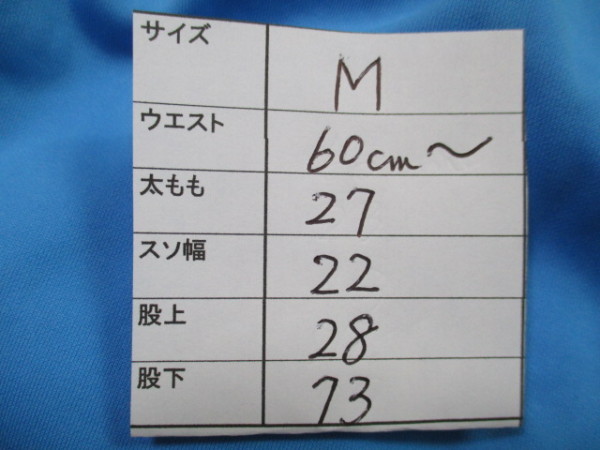 サイズ M
ウエスト 60cm〜
太もも 27
スソ幅 22
股上 28
股下 73